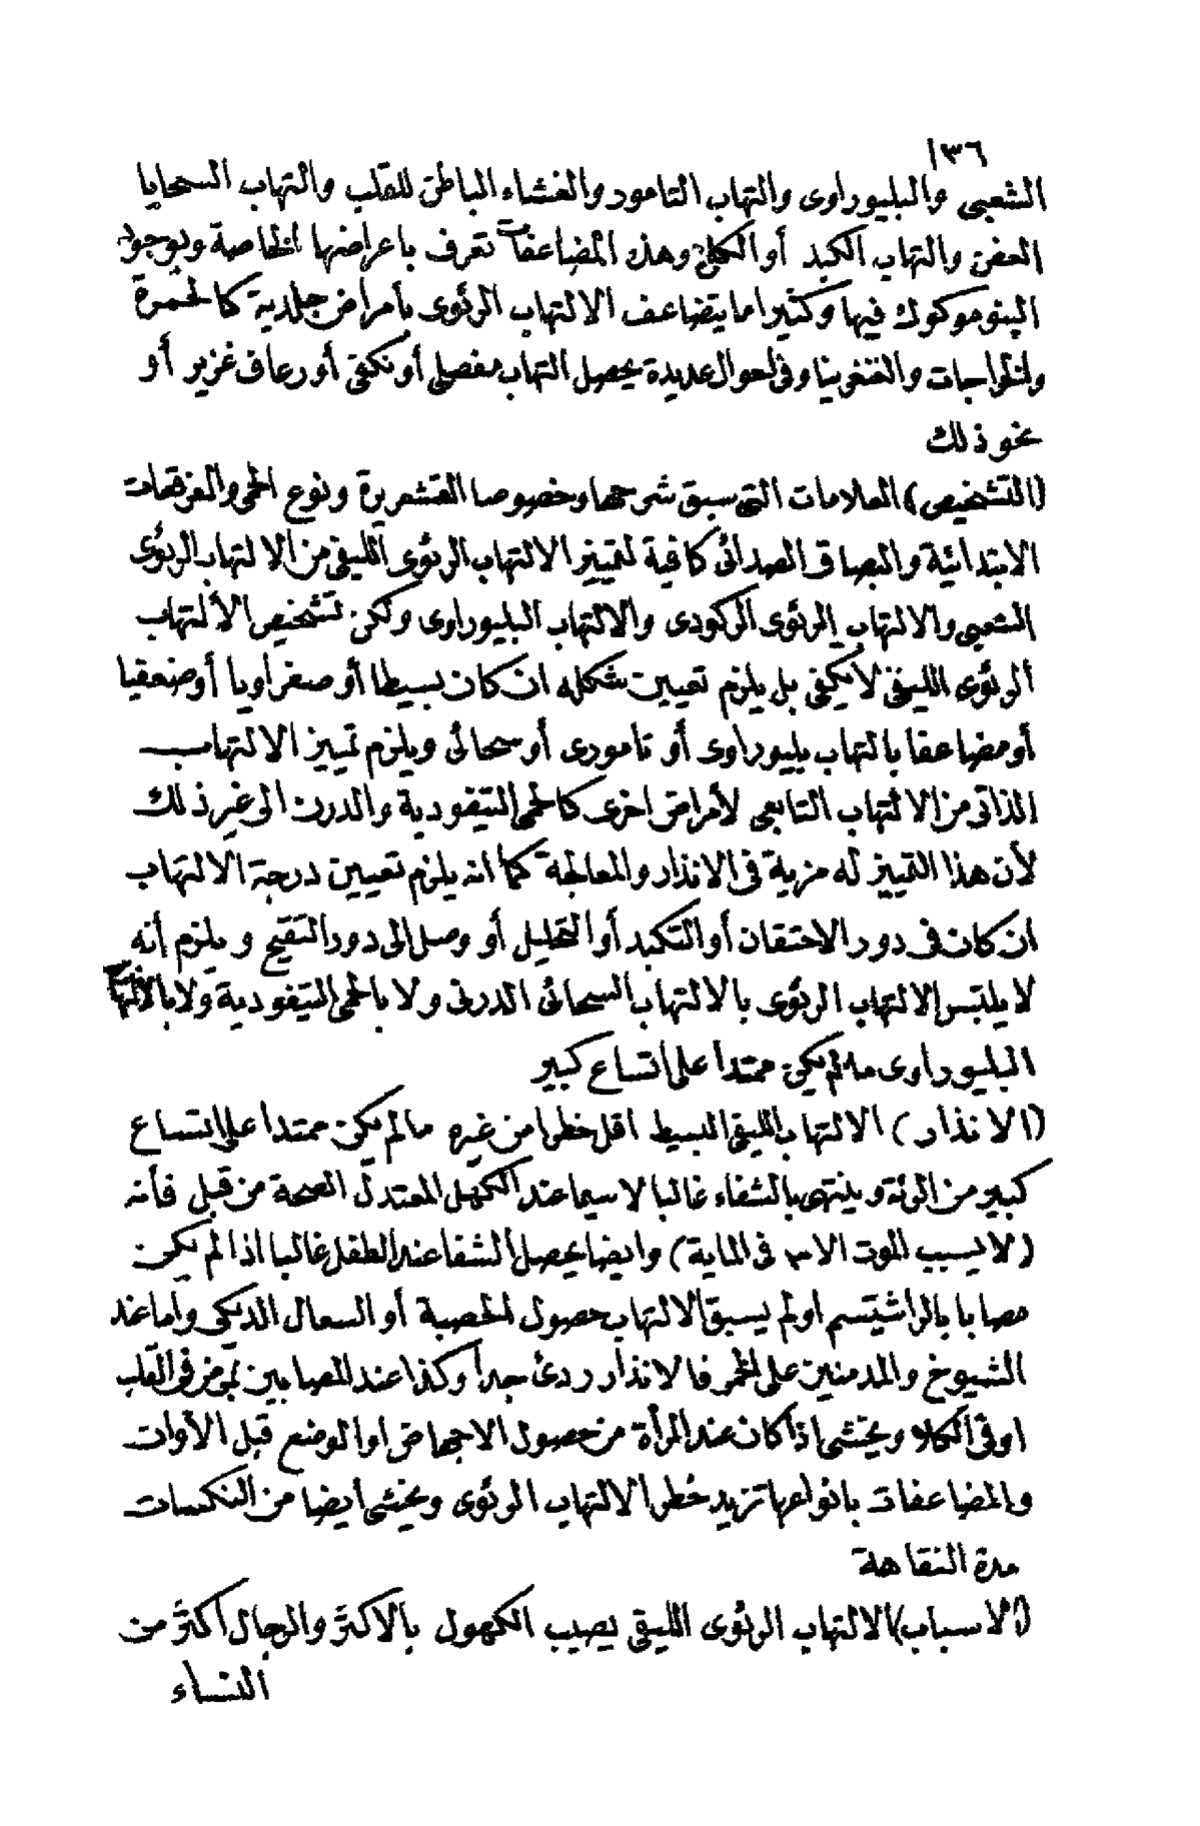 ١٣٦
الشعبى والبليوراوى والتهاب التامود والغشاء الباطن للقلب والتهاب السحايا
العفن والتهاب الكبد أو الكلى وهذه المضاعفات تعرف باعراضها الخاصة وبوجود
البنوموكوك فيها وكثيراما يتضاعف الالتهاب الرئوى بأمراض جلدية كالحمرة
والخراجات والغنغرينا وفى احوال عديدة يحصل التهاب مفصلى أو نكفى أو رعاف غزير أو
نحو ذلك
(التشخيص) العلامات التى سبق شرحها وخصوصا القشعريرة ونوع الحمى والفرقعات
الابتدائية والبصاق الصدائى كافية لتمييز الالتهاب الرئوى الليفى من الالتهاب الرئوى
الشعبى والالتهاب الرئوى الركودى والالتهاب البليوراوى ولكن تشخيص الألتهاب
الرئوى الليفى لا يكفى بل يلزم تعيين شكله ان كان بسيطا أو صفراويا أو ضعفيا
أو مضاعفا بالتهاب بليوراوى أو تامورى أو سحائى ويلزم تمييز الالتهاب
الذاتى من الالتهاب التابعى لأمراض اخرى كالحمى التيفودية والدرن الى غير ذلك
لأن هذا التمييز له مزية فى الانذار والمعالجة كما انه يلزم تعيين درجة الالتهاب
ان كان فى دور الاحتقان أو التكبد أو التحليل أو وصل الى دور التقيح ويلزم أنه
لا يلتبس الالتهاب الرئوى بالالتهاب السحائى الدرنى ولا بالحمى التيفودية ولا بالالتهاب
البليوراوى ما لم يكن ممتدا على اتساع كبير
(الانذار) الالتهاب الليفى البسيط اقل خطرا من غيره ما لم يكن ممتدا على اتساع
كبير من الرئة وينتهى بالشفاء غالبا لاسيما عند الكهل المعتدل الصحة من قبل فأنه
(لا يسبب الموت الا ٣ فى الماية) وايضا يحصل الشفا عند الطفل غالبا اذا لم يكن
مصابا بالراشيتسم او لم يسبق الالتهاب حصول الحصبة أو السعال الديكى واما عند
الشيوخ والمدمنين على الخمر فالانذار ردئ جدا وكذا عند المصابين بمرض فى القلب
او فى الكلا ويخشى اذا كان عند المرأة من حصول الاجهاض او الوضع قبل الأوان
والمضاعفات بانواعها تزيد خطر الالتهاب الرئوى ويخشى أيضا من النكسات
مدة النقاهة
(الاسباب) الالتهاب الرئوى الليفى يصيب الكهول بالاكثر والرجال اكثر من
النساء